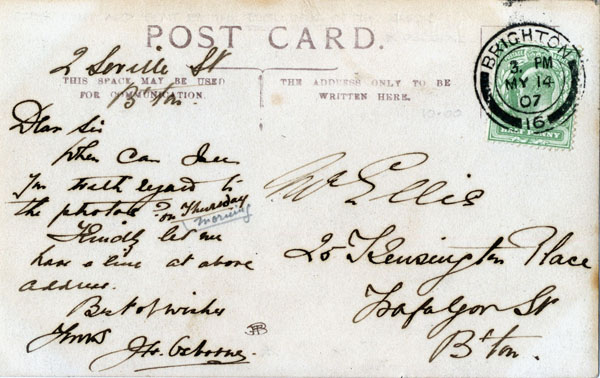 POST CARD.
THIS SPACE MAY BE USED
FOR COMMUNICATION.
THE ADDRESS ONLY TO BE
WRITTEN HERE.
2 Seville St
B'ton
Dear Sir
When can I see
You with regard to
the photos? on Thursday
morning
Kindly let me
have a line at above
address.
Best of wishes
Yours
J. Osborne.
Mr Ellis
25 Kensington Place
Trafalgar St
B'ton.
BRIGHTON
3. PM
MY 14
07
16
HALFPENNY